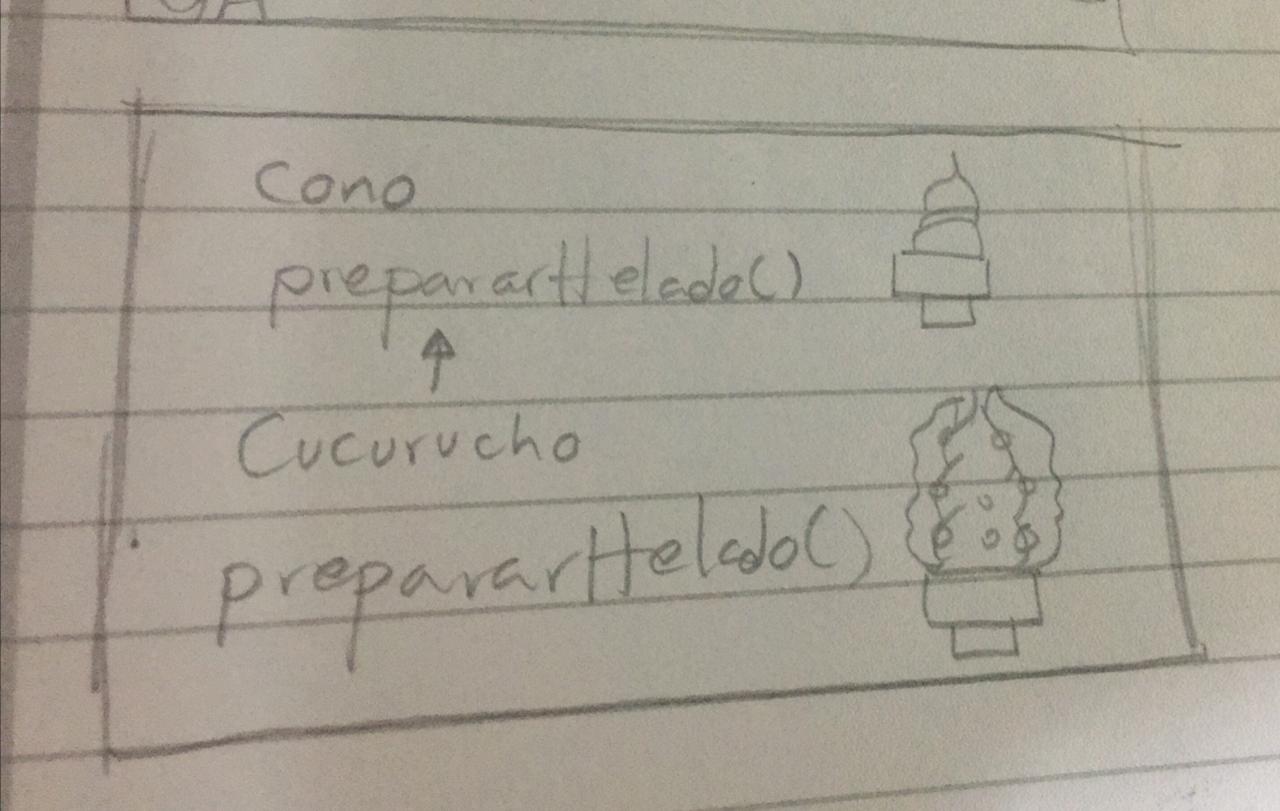 Cono
prepararHelado()
Cucurucho
prepararHelado()